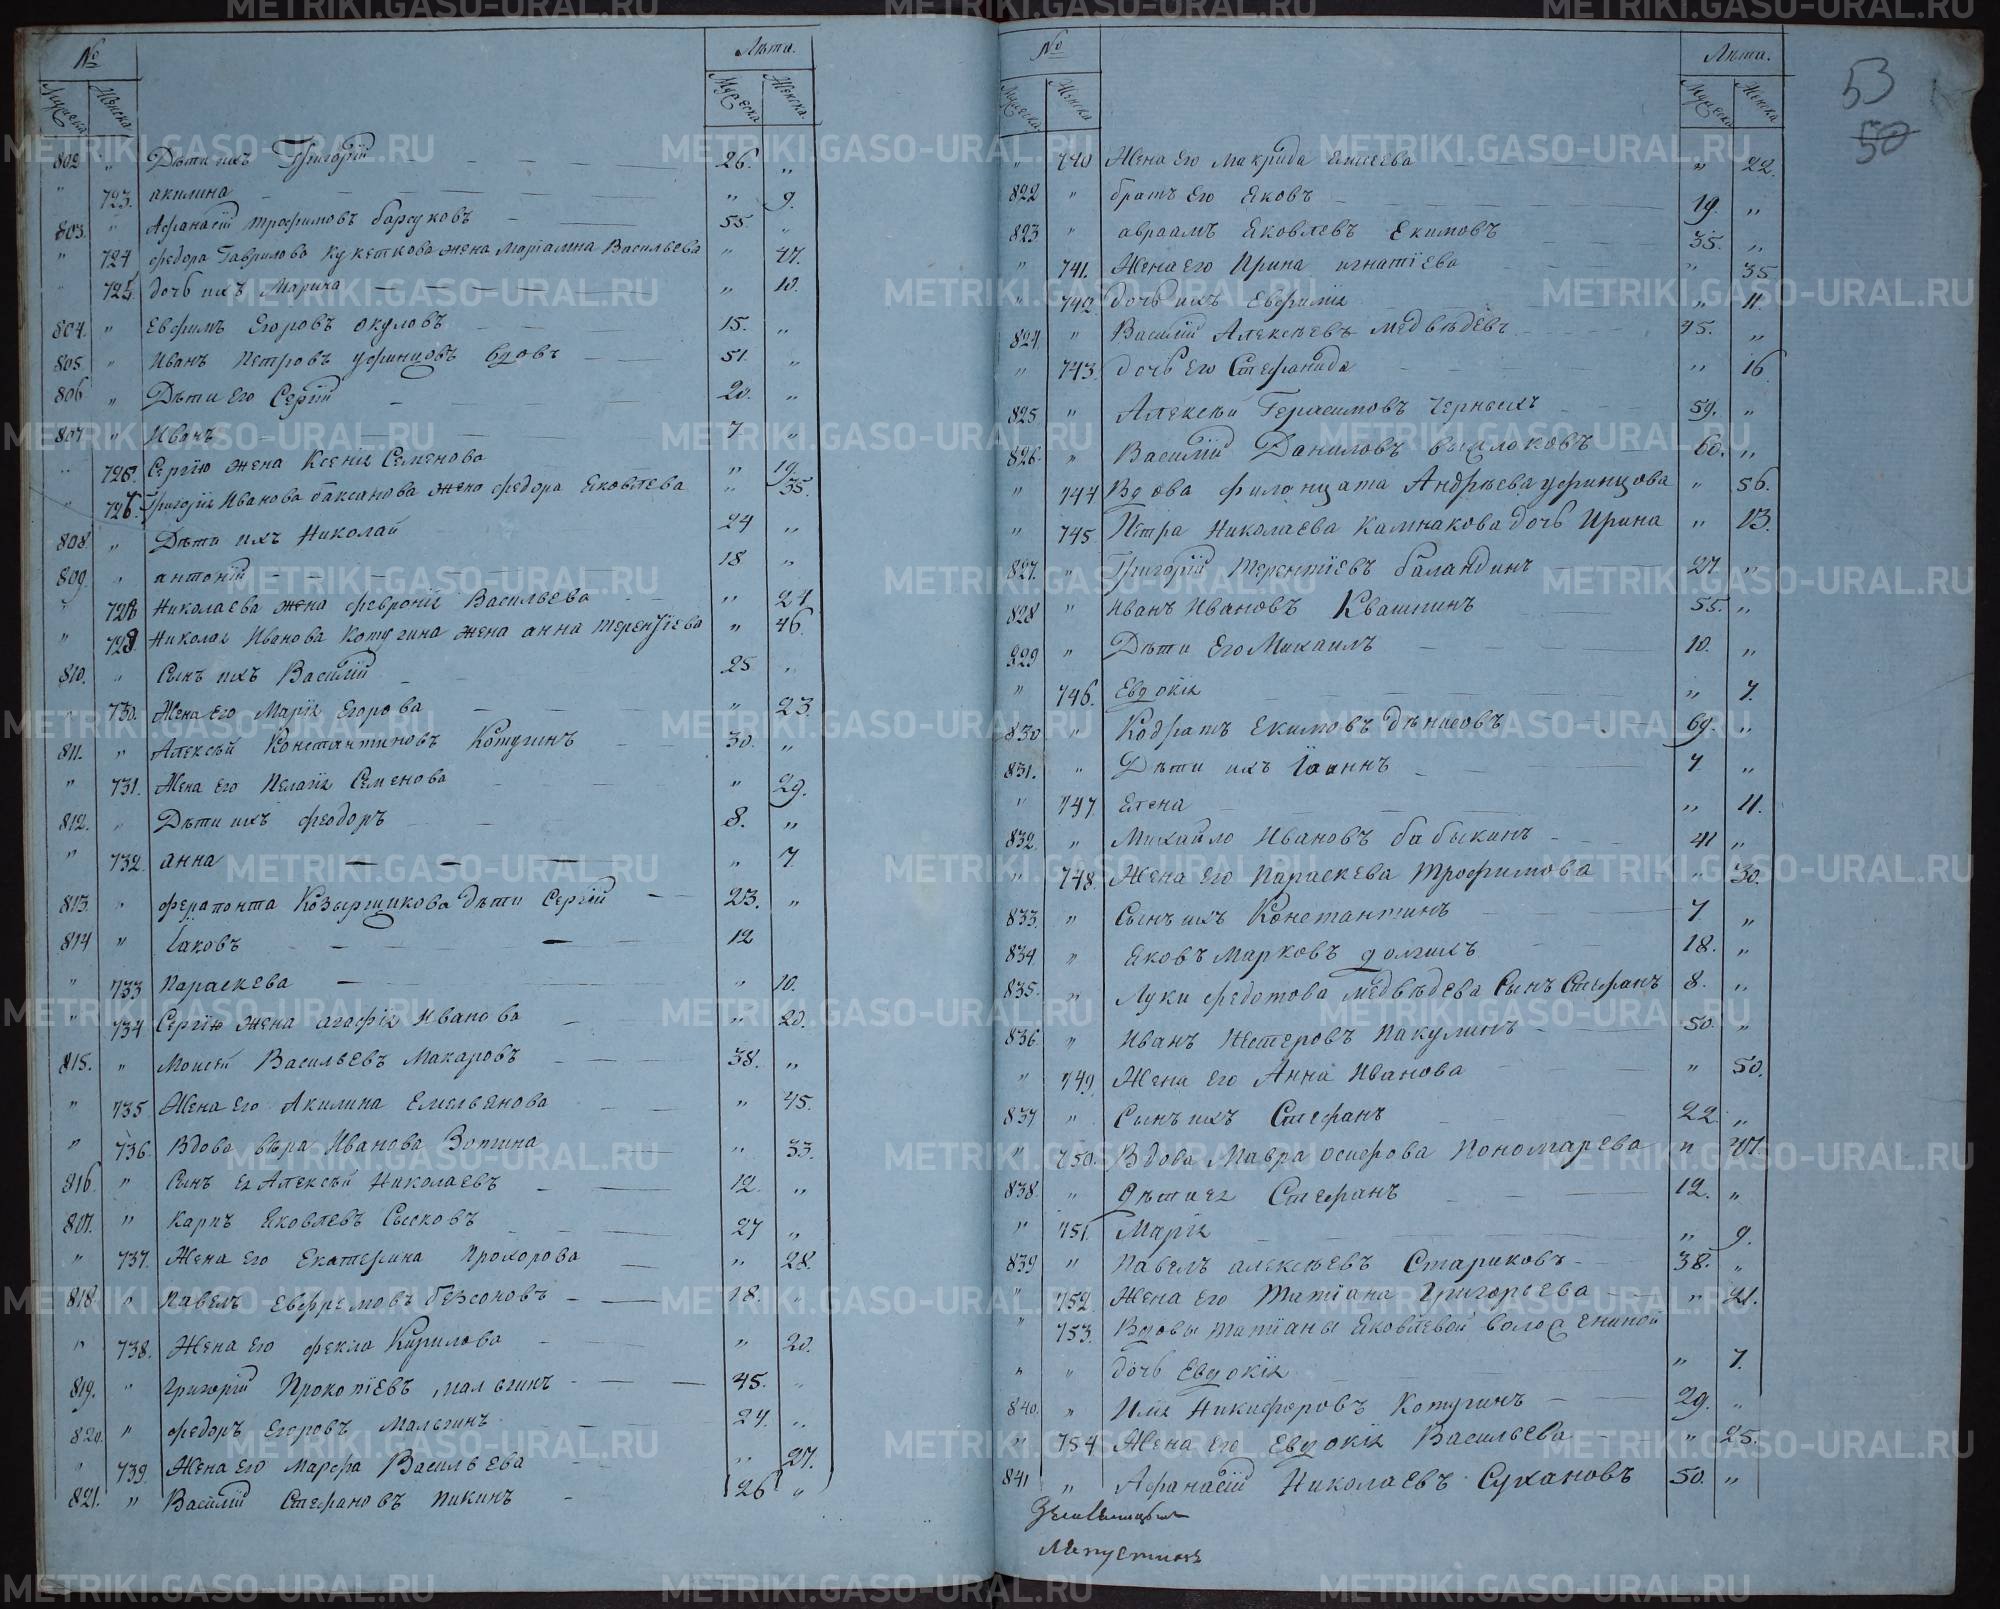 № Лѣта.
Мужеска Женска Мужеска Женска.
802 " Дѣти ихъ Григорій 26. "
" 723. акилина " 9.
803. " Афанасій трофимовъ барсуковъ 55. "
" 724 федора Гаврилова Кукеткова жена Маріамна Васильева " 47.
" 725. дочь ихъ Марича " 10.
804. " Евфимъ Егоровъ окуловъ 15. "
805 " Иванъ Петровъ уфинцовъ вдовъ 51. "
806 " Дѣти Его Сергій 20. "
807 " Иванъ 7 "
" 725. Сергію жена Ксенія Семенова " 19.
" 726. Григорія Иванова баксанова жена федора Яковлева " 35.
808. " Дѣти ихъ Николай 24 "
809. " антоній 18 "
" 728 Николаева жена февронія Васильева " 24
" 729 Николая Иванова Котугина жена анна терентіева " 46.
810. " Сынъ ихъ Василій 25 "
" 730. Жена Его Марія Егорова " 23.
811. " Алексѣй Константиновъ Котугинъ 30. "
" 731. Жена Его Пелагія Семенова " 29.
812. " Дѣти ихъ феодоръ 8. "
" 732. анна " 7.
813. " ферапонта Козырщикова дѣти Сергій 23. "
814 " Іаковъ 12
" 733 Параскева " 10.
" 734 Сергію жена агафія Иванова " 20.
815. " Моисей Васильевъ Макаровъ 38. "
" 735 Жена Его Акилина Емельянова " 45.
" 736. Вдова вѣра Иванова Зотина " 33.
816. " Сынъ Ея Алексѣй Николаевъ 12. "
817. " Карпъ Яковлевъ Сысковъ 27 "
" 737. Жена Его Екатерина Прохорова " 28.
818. " Павелъ Евфремовъ безсоновъ 18. "
" 738. Жена Его фекла Кирилова " 20.
819. " Григорій Прокопіевъ мальгинъ 45. "
820. " федоръ Егоровъ Мальгинъ 27. "
" 739. Жена Его Марфа Васильева " 27.
821. " Василій Стефановъ Пикинъ 26 "
№ Лѣта. 53
Мужеска Женска Мужеска Женска 50
" 740 Жена Его Макрида Елисеева " 22.
822 " братъ Его Яковъ 19. "
823 " авраамъ Яковлевъ Екимовъ 35. "
" 741. Жена его Ирина игнатіева " 35
" 742. дочь ихъ Евфимія " 11.
824. " Василій Алексѣевъ медвѣдевъ 45. "
" 743. дочь Его Стефанида " 16
825. " Алексѣй Герасимовъ Черныхъ 59. "
826. " Василій Даниловъ выслоковъ 60. "
" 744 Вдова филонцата Андрѣева уфинцова " 56.
" 745. Петра Николаева Калмакова дочь Ирина " 13.
827. " Григорій терентіевъ баландинъ 27. "
828 " иванъ Ивановъ Квашнинъ 55. "
829 " Дѣти Его Михаилъ 10. "
" 746. Евдокія " 7.
830 " Кодратъ Екимовъ дѣнисовъ 69. "
831. " Дѣти ихъ Іоаннъ 7 "
" 747. Елена " 11.
832. " Михайло Ивановъ бабыкинъ 41 "
" 748. Жена Его Параскева трофимова " 30.
833. " Сынъ ихъ Константинъ 7 "
834 " Яковъ Марковъ долгихъ 18. "
835. " Луки федотова медвѣдева Сынъ Стефанъ 8. "
836. " Иванъ Нестеровъ Пакулинъ 50. "
" 749 Жена Его Анна Иванова " 50.
837 " Сынъ ихъ Стефанъ 22. "
" 750. Вдова Мавра осифова Пономарева " 47.
838. " дѣти ея Стефанъ 12. "
" 751. Марія " 9.
839 " Павелъ алексѣевъ Стариковъ 38. "
" 752. Жена Его Татіана Григорьева " 41.
" 753. Вдовы татіаны Яковлевой волосениной
" " дочь Евдокія " 7.
840. " Илія Никифоровъ Котугинъ 29. "
" 754 Жена Его Евдокія Васильева " 25.
841 " Афанасій Николаевъ Сухановъ 50. "